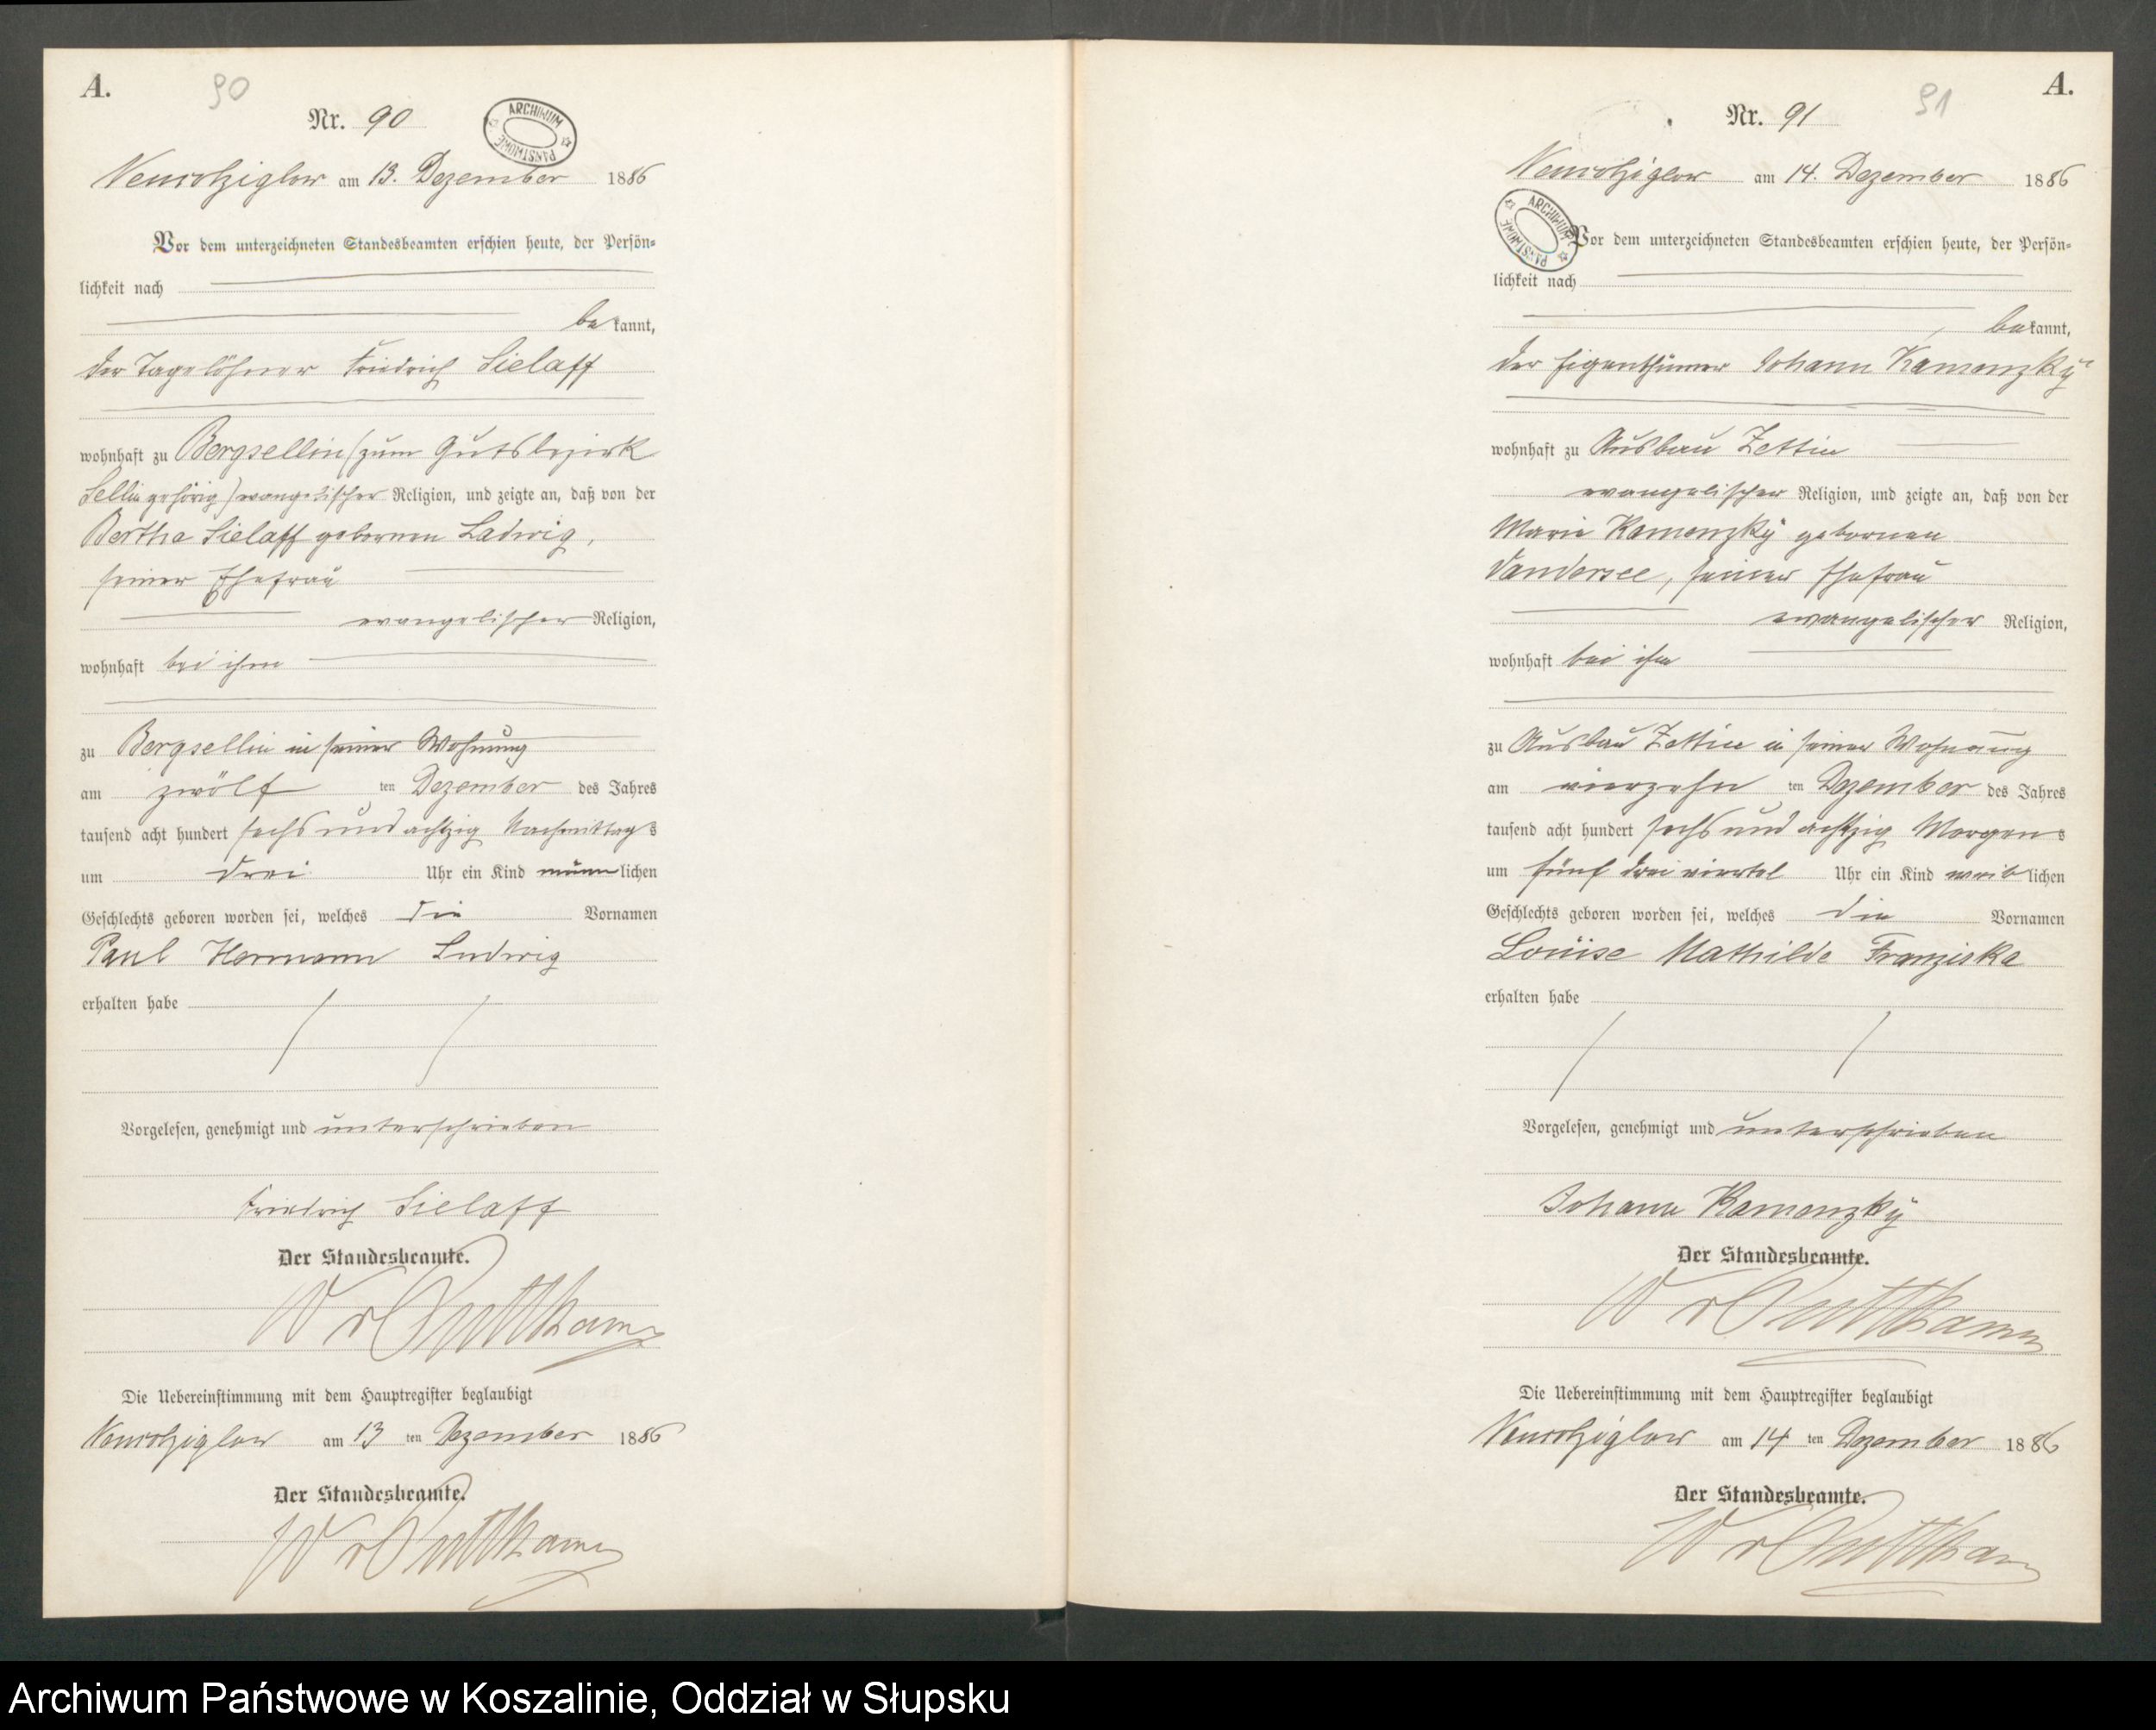 A.
90
Nr. 90
ARCHIWUM PAŃSTWOWE
Neurohziglow am 13. Dezember 1886
Vor dem unterzeichneten Standesbeamten erschien heute, der Persön=
lichkeit nach
bekannt,
der Tagelöhner Friedrich Sielaff
wohnhaft zu Bergsellin (zum Gutsbezirk
Sellin gehörig) evangelischer Religion, und zeigte an, daß von der
Bertha Sielaff gebornen Ladwig,
seiner Ehefrau
evangelischer Religion,
wohnhaft bei ihm
zu Bergsellin in seiner Wohnung
am zwölf ten Dezember des Jahres
tausend acht hundert sechs und achtzig Nachmittags
um drei Uhr ein Kind männlichen
Geschlechts geboren worden sei, welches die Vornamen
Paul Hermann Ludwig
erhalten habe
Vorgelesen, genehmigt und unterschrieben
Friedrich Sielaff
Der Standesbeamte.
W v Puttkamer
Die Uebereinstimmung mit dem Hauptregister beglaubigt
Neurohziglow am 13 ten Dezember 1886
Der Standesbeamte.
W v Puttkamer
A.
91
Nr. 91
Neurohziglow am 14. Dezember 1886
ARCHIWUM PAŃSTWOWE
Vor dem unterzeichneten Standesbeamten erschien heute, der Persön=
lichkeit nach
bekannt,
der Eigenthümer Johann Kamenzky
wohnhaft zu Ausbau Zettin
evangelischer Religion, und zeigte an, daß von der
Marie Kamenzky gebornen
Vandersee, seiner Ehefrau
evangelischer Religion,
wohnhaft bei ihm
zu Ausbau Zettin in seiner Wohnung
am vierzehn ten Dezember des Jahres
tausend acht hundert sechs und achtzig Morgens
um fünf drei viertel Uhr ein Kind weiblichen
Geschlechts geboren worden sei, welches die Vornamen
Louise Mathilde Franziska
erhalten habe
Vorgelesen, genehmigt und unterschrieben
Johann Kamenzky
Der Standesbeamte.
W v Puttkamer
Die Uebereinstimmung mit dem Hauptregister beglaubigt
Neurohziglow am 14 ten Dezember 1886
Der Standesbeamte.
W v Puttkamer
Archiwum Państwowe w Koszalinie, Oddział w Słupsku